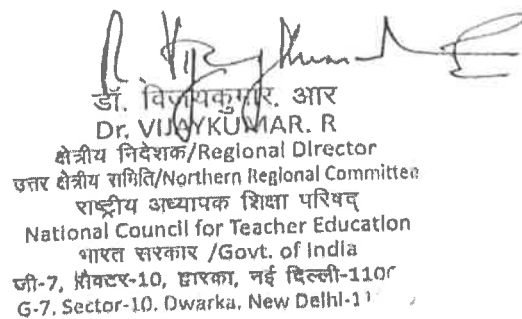 डॉ. विजयकुमार. आर
Dr. VIJAYKUMAR. R
क्षेत्रीय निदेशक/Regional Director
उत्तर क्षेत्रीय समिति/Northern Regional Committee
राष्ट्रीय अध्यापक शिक्षा परिषद्
National Council for Teacher Education
भारत सरकार /Govt. of India
जी-7, सैक्टर-10, द्वारका, नई दिल्ली-110
G-7, Sector-10, Dwarka, New Delhi-11